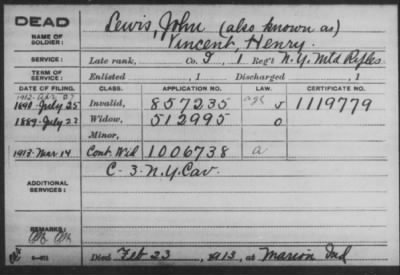 DEAD
Lewis, John (also known as)
NAME OF SOLDIER:
Vincent, Henry.
SERVICE:
Late rank, Co. I, 1 Reg't N.Y. Mtd Rifles
TERM OF SERVICE:
Enlisted , 1 Discharged , 1
DATE OF FILING. CLASS. APPLICATION NO. LAW. CERTIFICATE NO.
1890 July 25 Invalid, 857235 1119779
1889 July 23 Widow, 512995 0
Minor,
1913 Mar 14 Cont Wid 1006738 a
C-3-N.Y. Cav.
ADDITIONAL SERVICES:
REMARKS:
Died Feb 23, 1913, at Marion Ind